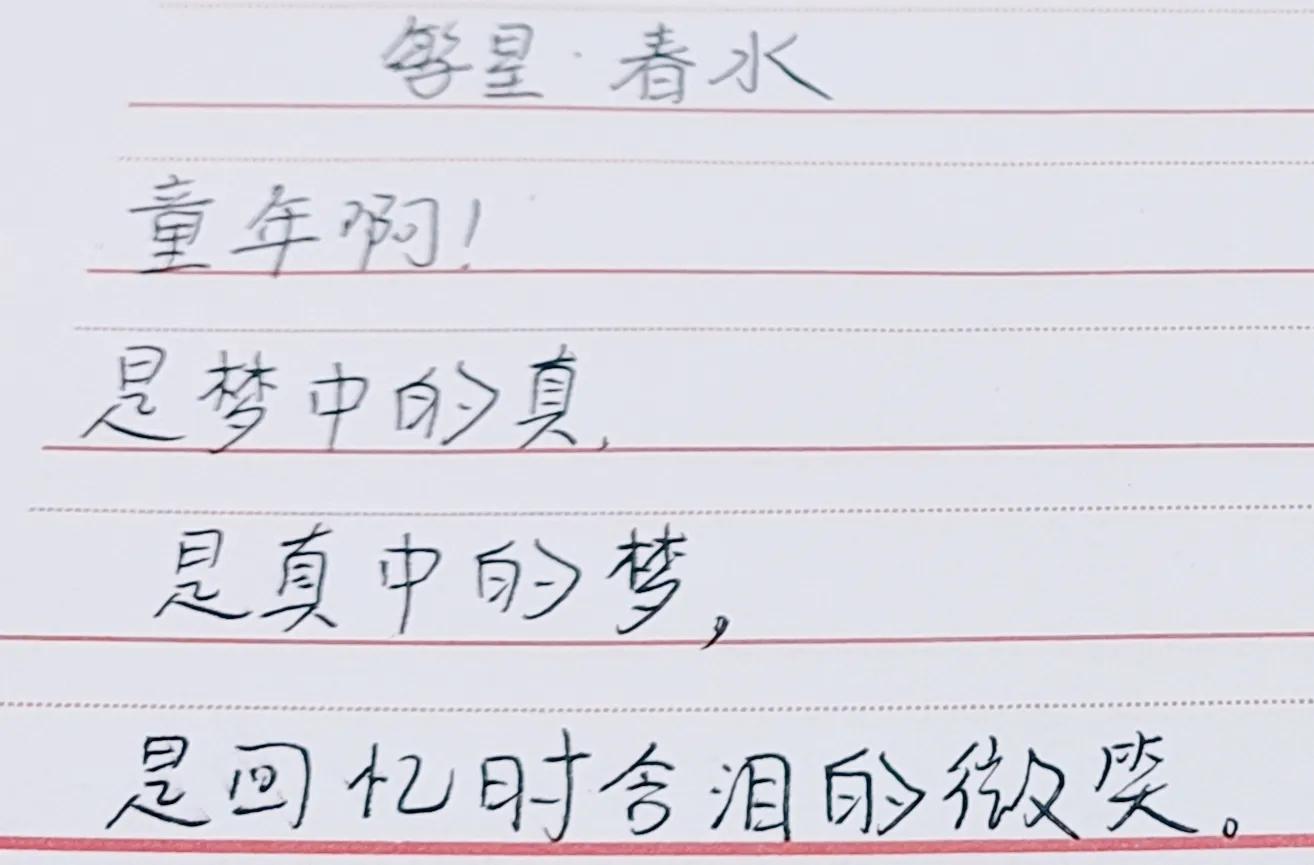 繁星·春水
童年啊!
是梦中的真,
是真中的梦,
是回忆时含泪的微笑。